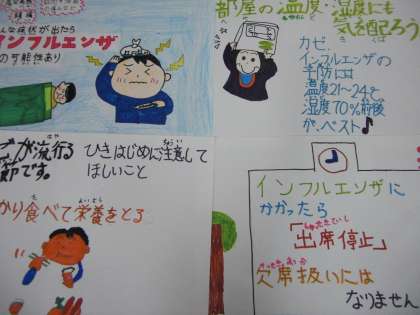 こんな症状が出たら
インフルエンザ
の可能性あり
部屋の温度・湿度にも
気を配ろう
カゼ、
インフルエンザの
予防には
温度21～24℃
湿度70%前後
が、ベスト♪
が流行る
節です。
ひきはじめに注意して
ほしいこと
かり食べて栄養をとる
インフルエンザに
かかったら
「出席停止」
欠席扱いには
なりません